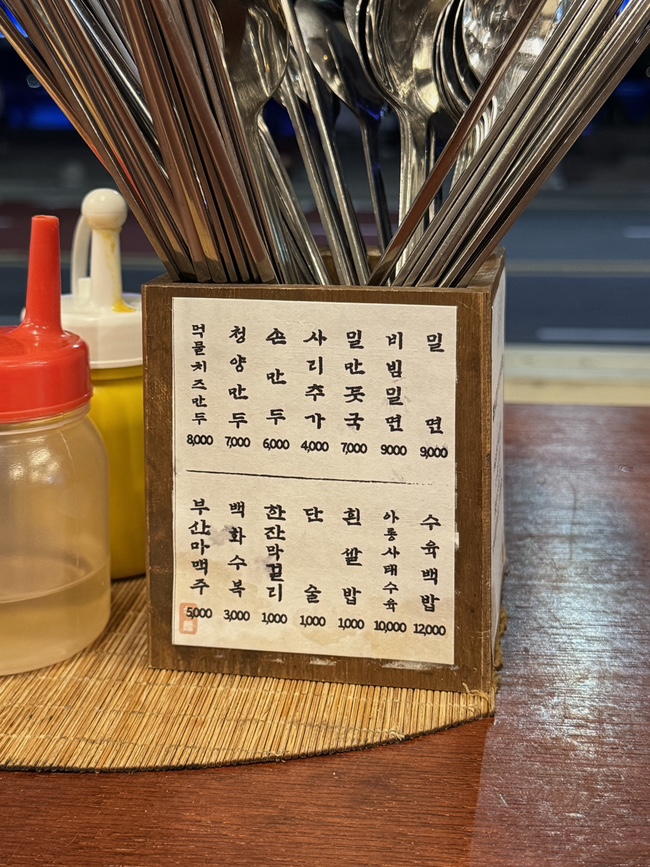 밀면 9,000
비빔밀면 9000
밀만둣국 7,000
사리추가 4,000
손만두 6,000
청양만두 7,000
먹물치즈만두 8,000
수육백밥 12,000
아롱사태수육 10,000
흰쌀밥 1,000
단술 1,000
한잔막걸리 1,000
백화수복 3,000
부산마맥주 5,000